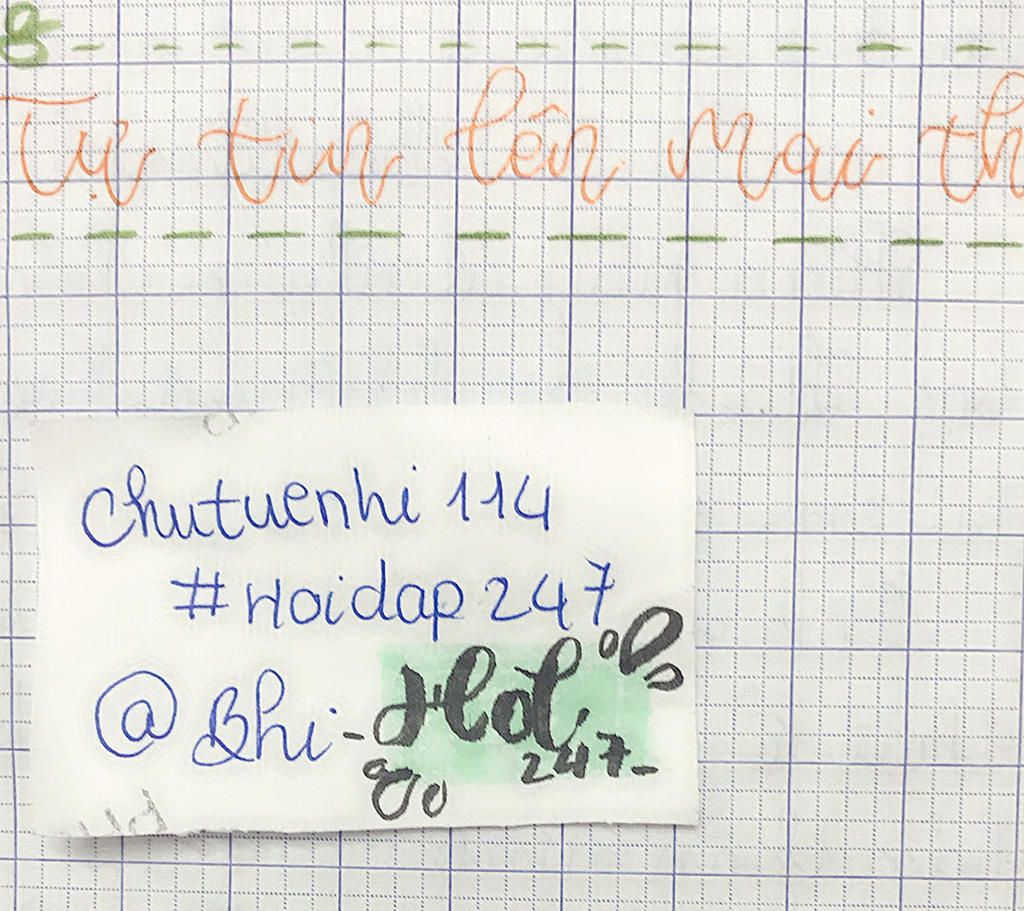 Tự tin lên Mai th
Chutuenhi 114
#Hoidap247
@Bhi-
247-